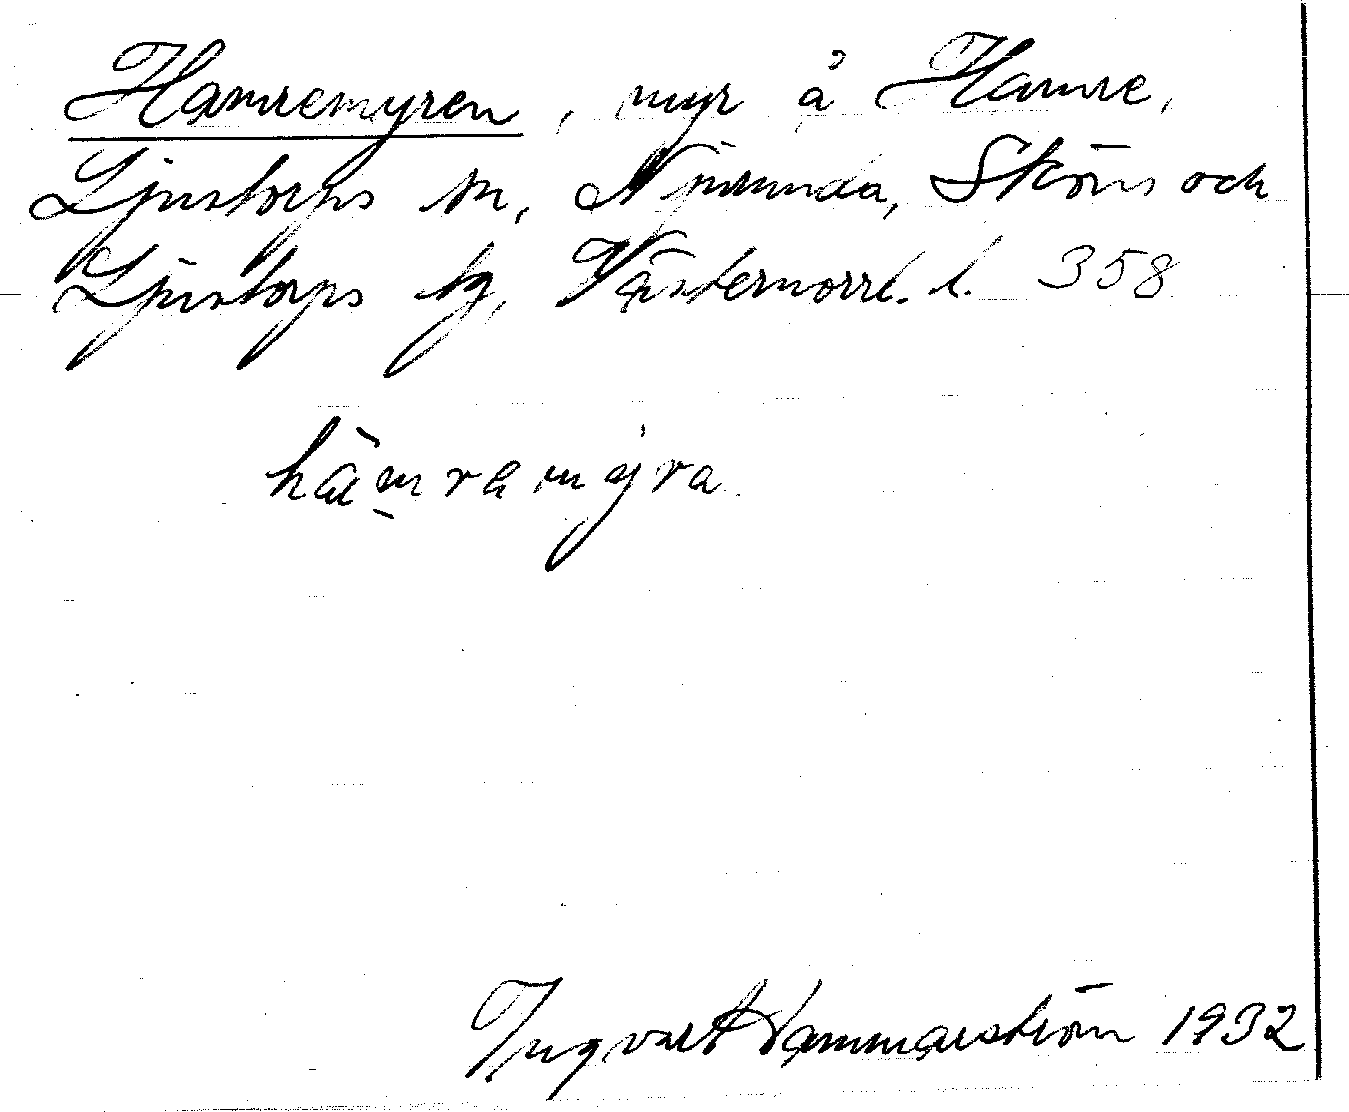 Hamremyren, myr å Hamre,
Ljustorps sn, Njurunda, Sköns och
Ljustorps tg, Västernorrl. l. 358
hämramýra
Ingvar Hammarström 1932